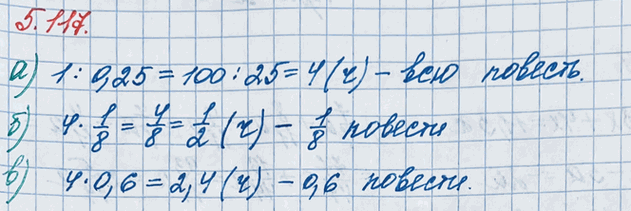 5.117.
а) 1 : 0,25 = 100 : 25 = 4 (ч) – всю повесть.
б) 4 · 1/8 = 4/8 = 1/2 (ч) – 1/8 повести
в) 4 · 0,6 = 2,4 (ч) – 0,6 повести.